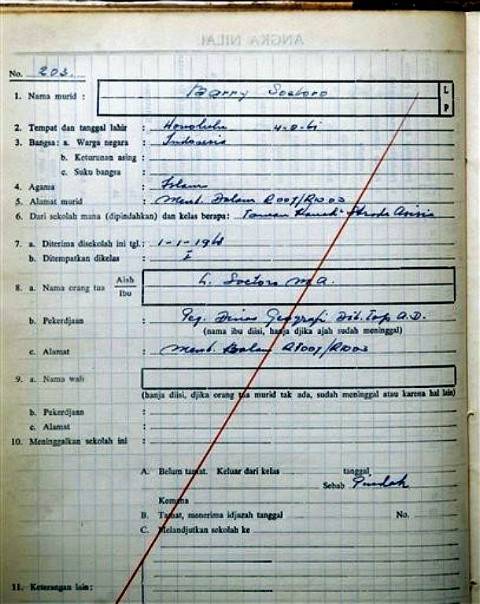 ANGKA NILAI
No. 203.
1. Nama murid : Barry Soetoro L P
2. Tempat dan tanggal lahir : Honolulu 4-8-61
3. Bangsa : a. Warga negara : Indonesia
b. Keturunan asing :
c. Suku bangsa :
4. Agama : Islam
5. Alamat murid : Ment. Dalam R007/R003
6. Dari sekolah mana (dipindahkan) dan kelas berapa : Taman Kanak² Strada Asisia
7. a. Diterima disekolah ini tgl. : 1-1-1968
b. Ditempatkan dikelas : I
8. a. Nama orang tua Ajah/Ibu : L. Soetoro M.A.
b. Pekerdjaan : Peg. Dinas Geografi Dit. Top. A.D.
(nama ibu diisi, hanja djika ajah sudah meninggal)
c. Alamat : Ment. Dalam R007/R003
9. a. Nama wali
(hanja diisi, djika orang tua murid tak ada, sudah meninggal atau karena hal lain)
b. Pekerdjaan :
c. Alamat :
10. Meninggalkan sekolah ini :
A. Belum tamat. Keluar dari kelas tanggal
Sebab Pindah
Kemana
B. Tamat, menerima idjazah tanggal No.
C. Melandjutkan sekolah ke
11. Keterangan lain :